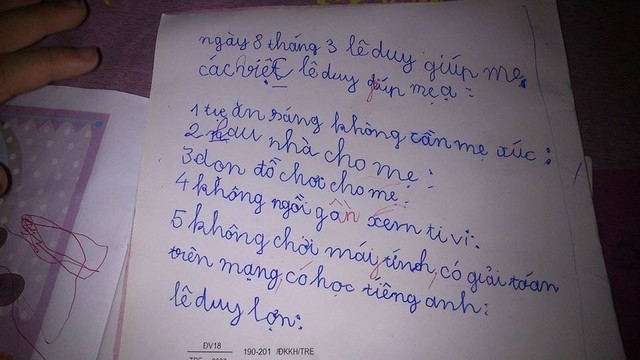 ngày 8 tháng 3 lê duy giúp mẹ
các việt lê duy giúp mẹ ạ:
1 tự ăn sáng không cần mẹ xúc:
2 lau nhà cho mẹ:
3 dọn đồ chơi cho mẹ:
4 không ngồi gần xem ti vi:
5 không chơi máy tính, có giải toán
trên mạng, có học tiếng anh:
lê duy lợn:
ĐV18 190-201 /ĐKKH/TRE